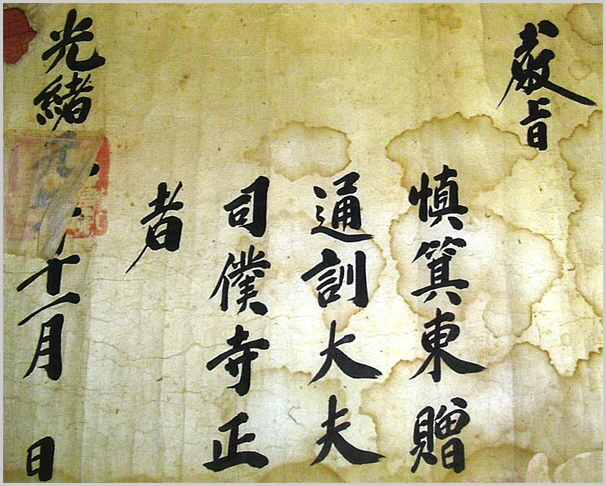 敎旨
愼箕東贈
通訓大夫
司僕寺正
者
光緖 十一月 日